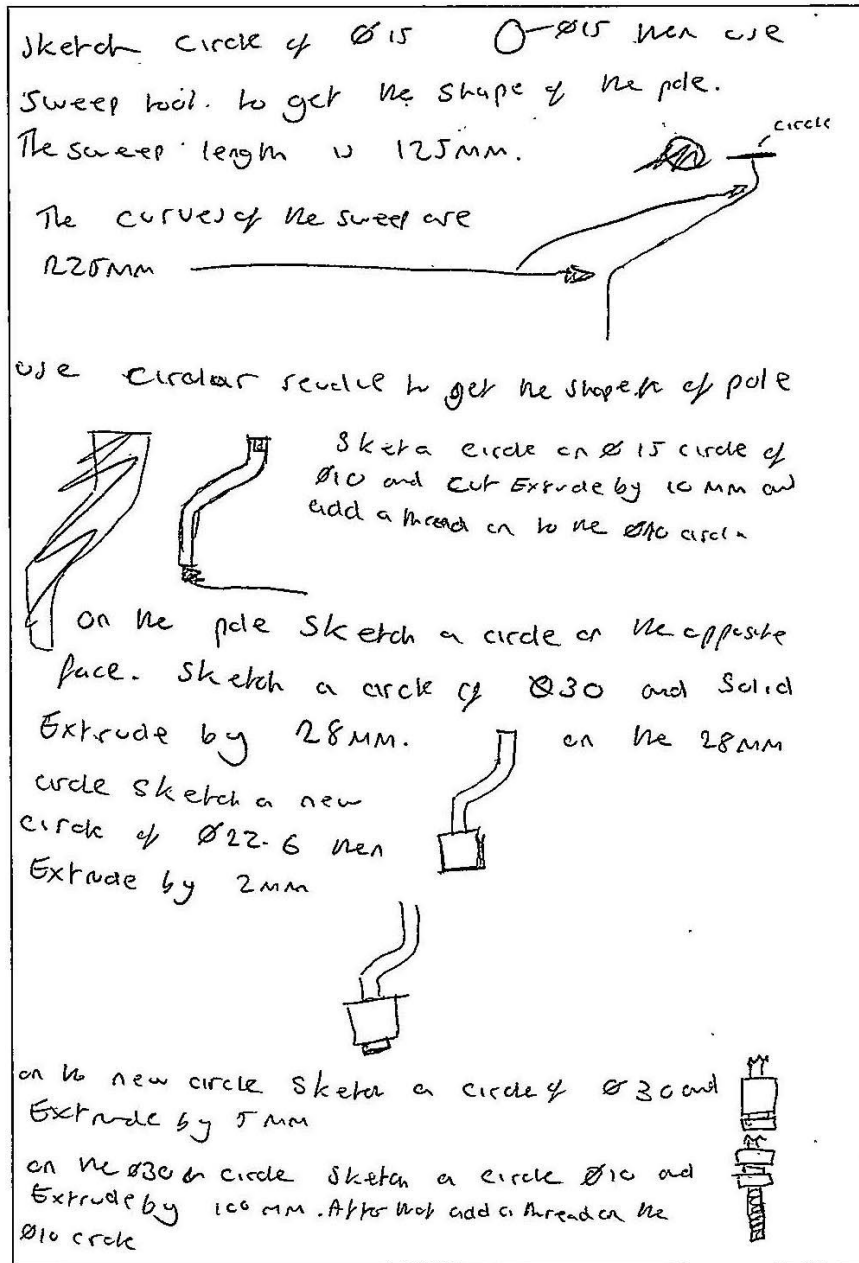 Sketch circle of Ø15 O-Ø15 then use
Sweep tool. to get the shape of the pole.
circle
The sweep length is 125MM.
The curves of the sweep are
R25MM
use circular to get the shape of pole
Sketa circle on Ø15 circle of
Ø10 and Cut Extrude by 10 MM and
add a thread on to the Ø10 circle
on the pole Sketch a circle on the opposite
face. Sketch a circle of Ø30 and Solid
Extrude by 28MM. on the 28MM
circle sketch a new
circle of Ø22.6 then
Extrude by 2MM
on the new circle Sketch a circle of Ø30 and
Extrude by 5MM
on the Ø30 circle Sketch a circle Ø10 and
Extrude by 100 MM. After that add a thread on the
Ø10 circle